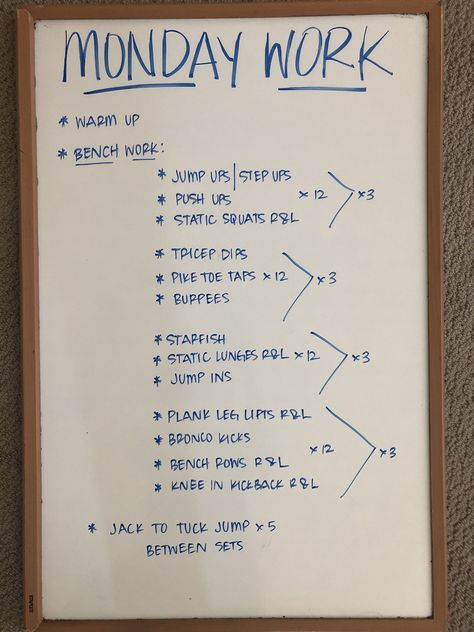 MONDAY WORK
* WARM UP
* BENCH WORK:
* JUMP UPS | STEP UPS
* PUSH UPS x 12 x 3
* STATIC SQUATS R&L
* TRICEP DIPS
* PIKE TOE TAPS x 12 x 3
* BURPEES
* STARFISH
* STATIC LUNGES R&L x 12 x 3
* JUMP INS
* PLANK LEG LIFTS R&L
* BRONCO KICKS x 12 x 3
* BENCH ROWS R&L
* KNEE IN KICKBACK R&L
* JACK TO TUCK JUMP x 5
BETWEEN SETS